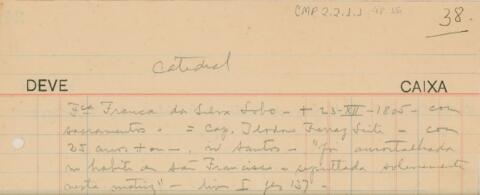 CMP 2.2.1.1.48.16
38.
Catedral
DEVE CAIXA
Fca Franca da Silva Lobo - + 23-XII-1805 - com
sacramentos. = Cap. Ferraz Leite - com
25 anos + ou -, n/ Santos - "foi amortalhada
n/ habito de São Francisco e sepultada solenemente
nesta matriz" - livro I fls 137 -